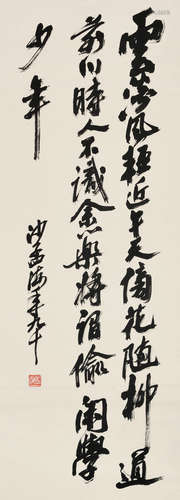 雲淡風輕近午天傍花随柳過
前川時人不識余心樂將謂偷閒學
少年
沙孟海年九十